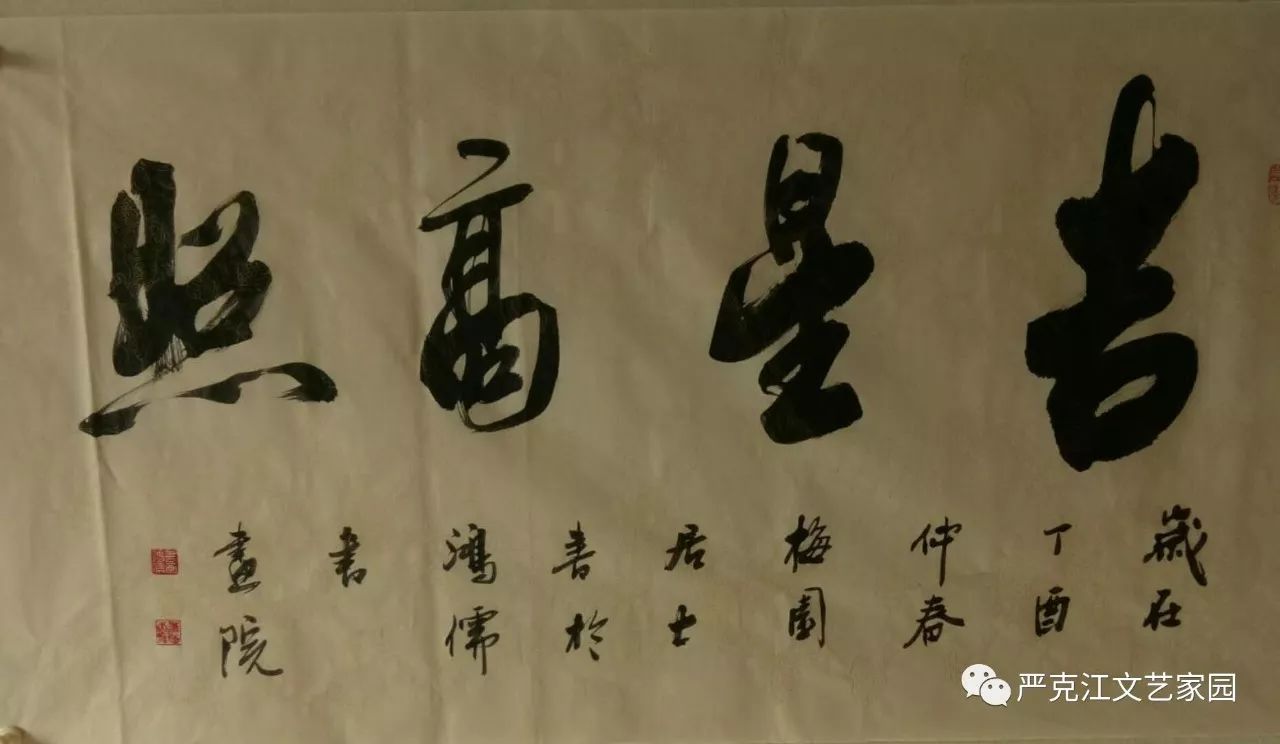 吉星高照
歲在
丁酉
仲春
梅園
居士
書於
鴻儒
書
畫院
严克江文艺家园